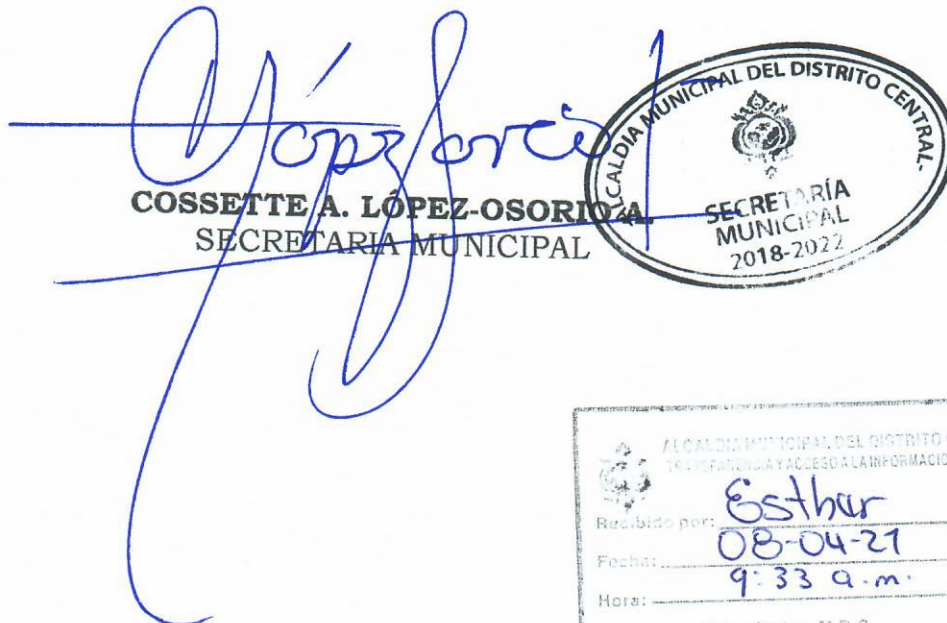 COSSETTE A. LÓPEZ-OSORIO A.
SECRETARIA MUNICIPAL
ALCALDIA MUNICIPAL DEL DISTRITO CENTRAL-
SECRETARÍA
MUNICIPAL
2018-2022
ALCALDIA MUNICIPAL DEL DISTRITO
TRANSPARENCIA Y ACCESO A LA INFORMACIO
Recibido por: Esther
Fecha: 08-04-21
Hora: 9:33 a.m.